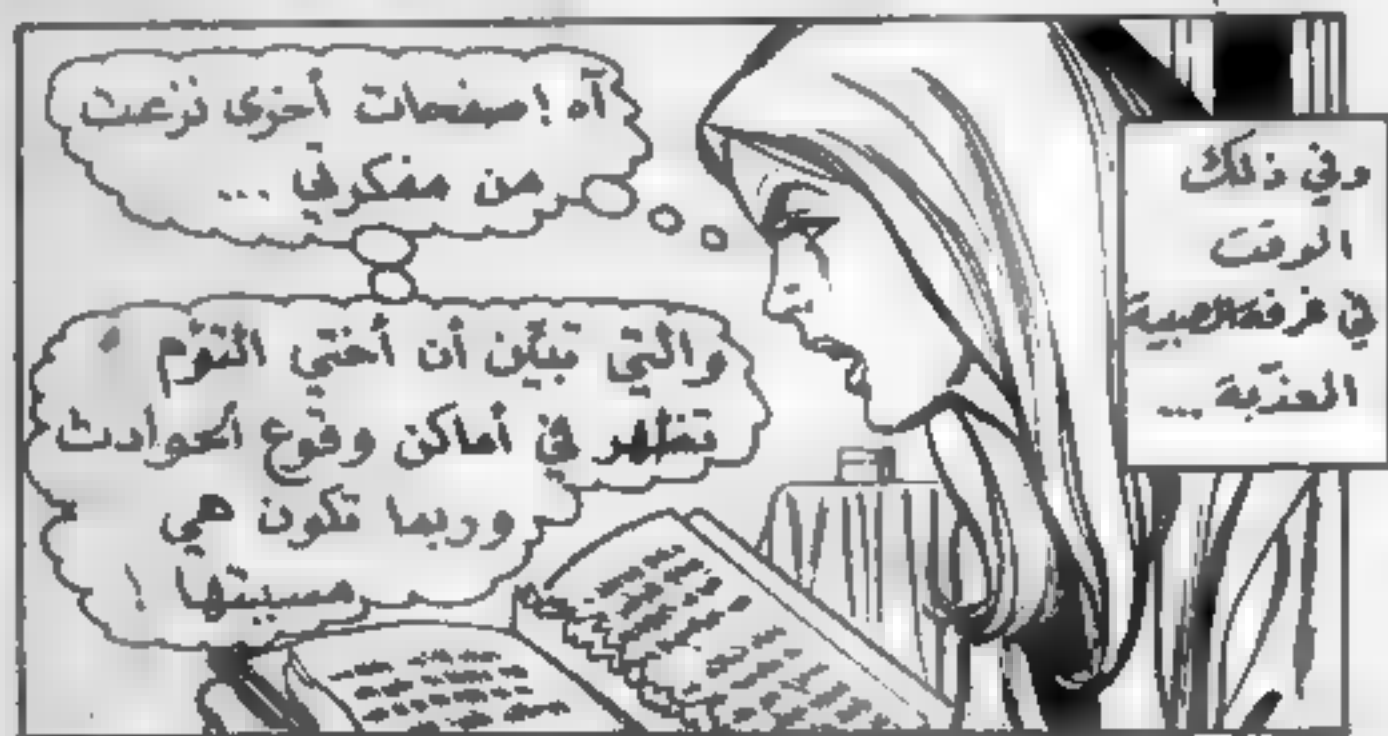 وفي ذلك
الوقت
في غرفة الصبية
المعذبة ...
آه ! صفحات أخرى نزعت
من مفكرتي ...
والتي تبيّن أن أختي التوأم
تظهر في أماكن وقوع الحوادث
وربما تكون هي
مسببتها !